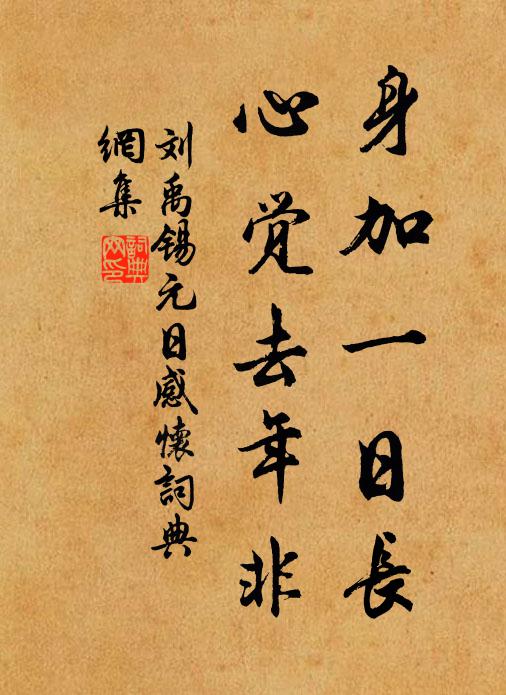 身加一日长
心觉去年非
刘禹锡元日感懷詞典
網集
詞典
网印